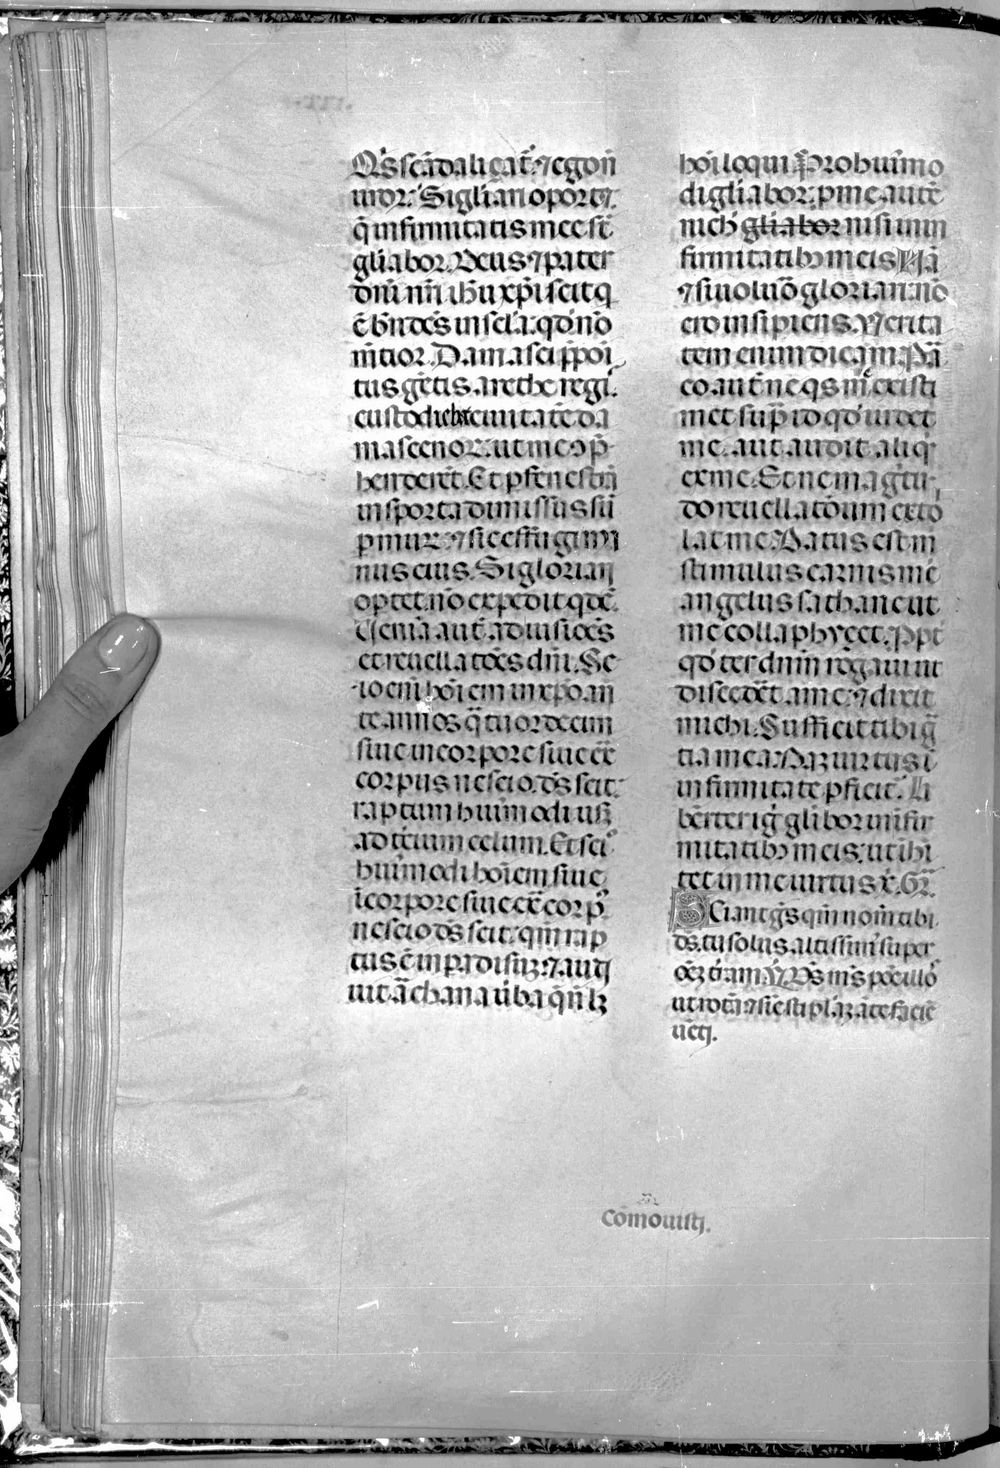 Q̄s scādaliçat̄. ⁊ ego nō
uror. Si gl̄iari oportꝫ.
q̄ infirmitatis mee st̄
gl̄iabor. Deus ⁊ pater
dn̄i nr̄i ih̄u xp̄i scit q̄
ē bn̄dc̄s in scl̄a: qd' nō
m̄tior. Damasci p̄poi
tus gētis. arethe regi'.
custodiebat ciuitatē da
mascenoꝝ: ut me ↄp̄
henderet̄. Et ꝑ fenestrā
in sporta dimissus sū
ꝑ muꝝ: ⁊ sic effugi ma
nus eius. Si gloriari
optet. nō expedit qdē.
Ueniā aut̄ ad uisiōēs
et reuellatōes dn̄i. Sc
io em̄ hoīem in xp̄o. an̄
te annos q̄tuordecim
siue in corpore siue ext̄
corpus nescio. ds̄ scit:
raptum huiūmodi usqꝫ
ad tēium celum. Et sci'
huiūmodi hoīem siue
ī corpore siue ext̄ corp'
nescio ds̄ scit: qm̄ rap
tus ē in ꝑadisuꝫ: ⁊ audi
uit archana ūba q̄ nō lꝫ
hōi loqui. Pro huiūmo
di gl̄iabor. p me autē
nich' gl̄iabor nisi in in
firmitatibꝫ meis. Nā
⁊ si uoluo gloriari: nō
ero insipiens. Uerita
tem enim dicam. Par
co aut̄ ne qs̄ m̄ existi
met sup̄ id qd' uidet
me. aut audit aliq'
ex me. Et ne magitu
do reuellatōum exto
lat me. Datus est m̄
stimulus carnis mē
angelus sathane ut
me collaphyçet. Ppt̄
qd' ter dnm̄ rogaui ut
discedēt a me. ⁊ dixit
michi. Sufficit tibi gr̄
tia mea. Naꝫ uirtus ī
infirmitate ꝑficit̄. Li
bēter ig' gl̄iabor in īfir
mitatibꝫ meis: ut īhi
tet in me uirtus x̄. Gr̄.
Sciant gēs qm̄ nom̄ tibi
ds̄. tu solus altissim' super
oēꝫ t̄ram. ℣. Ds̄ m̄s poē illo'
ut rotā: ⁊ sic' stiplāꝫ āte faciē
uēti.
Cōmouisti.